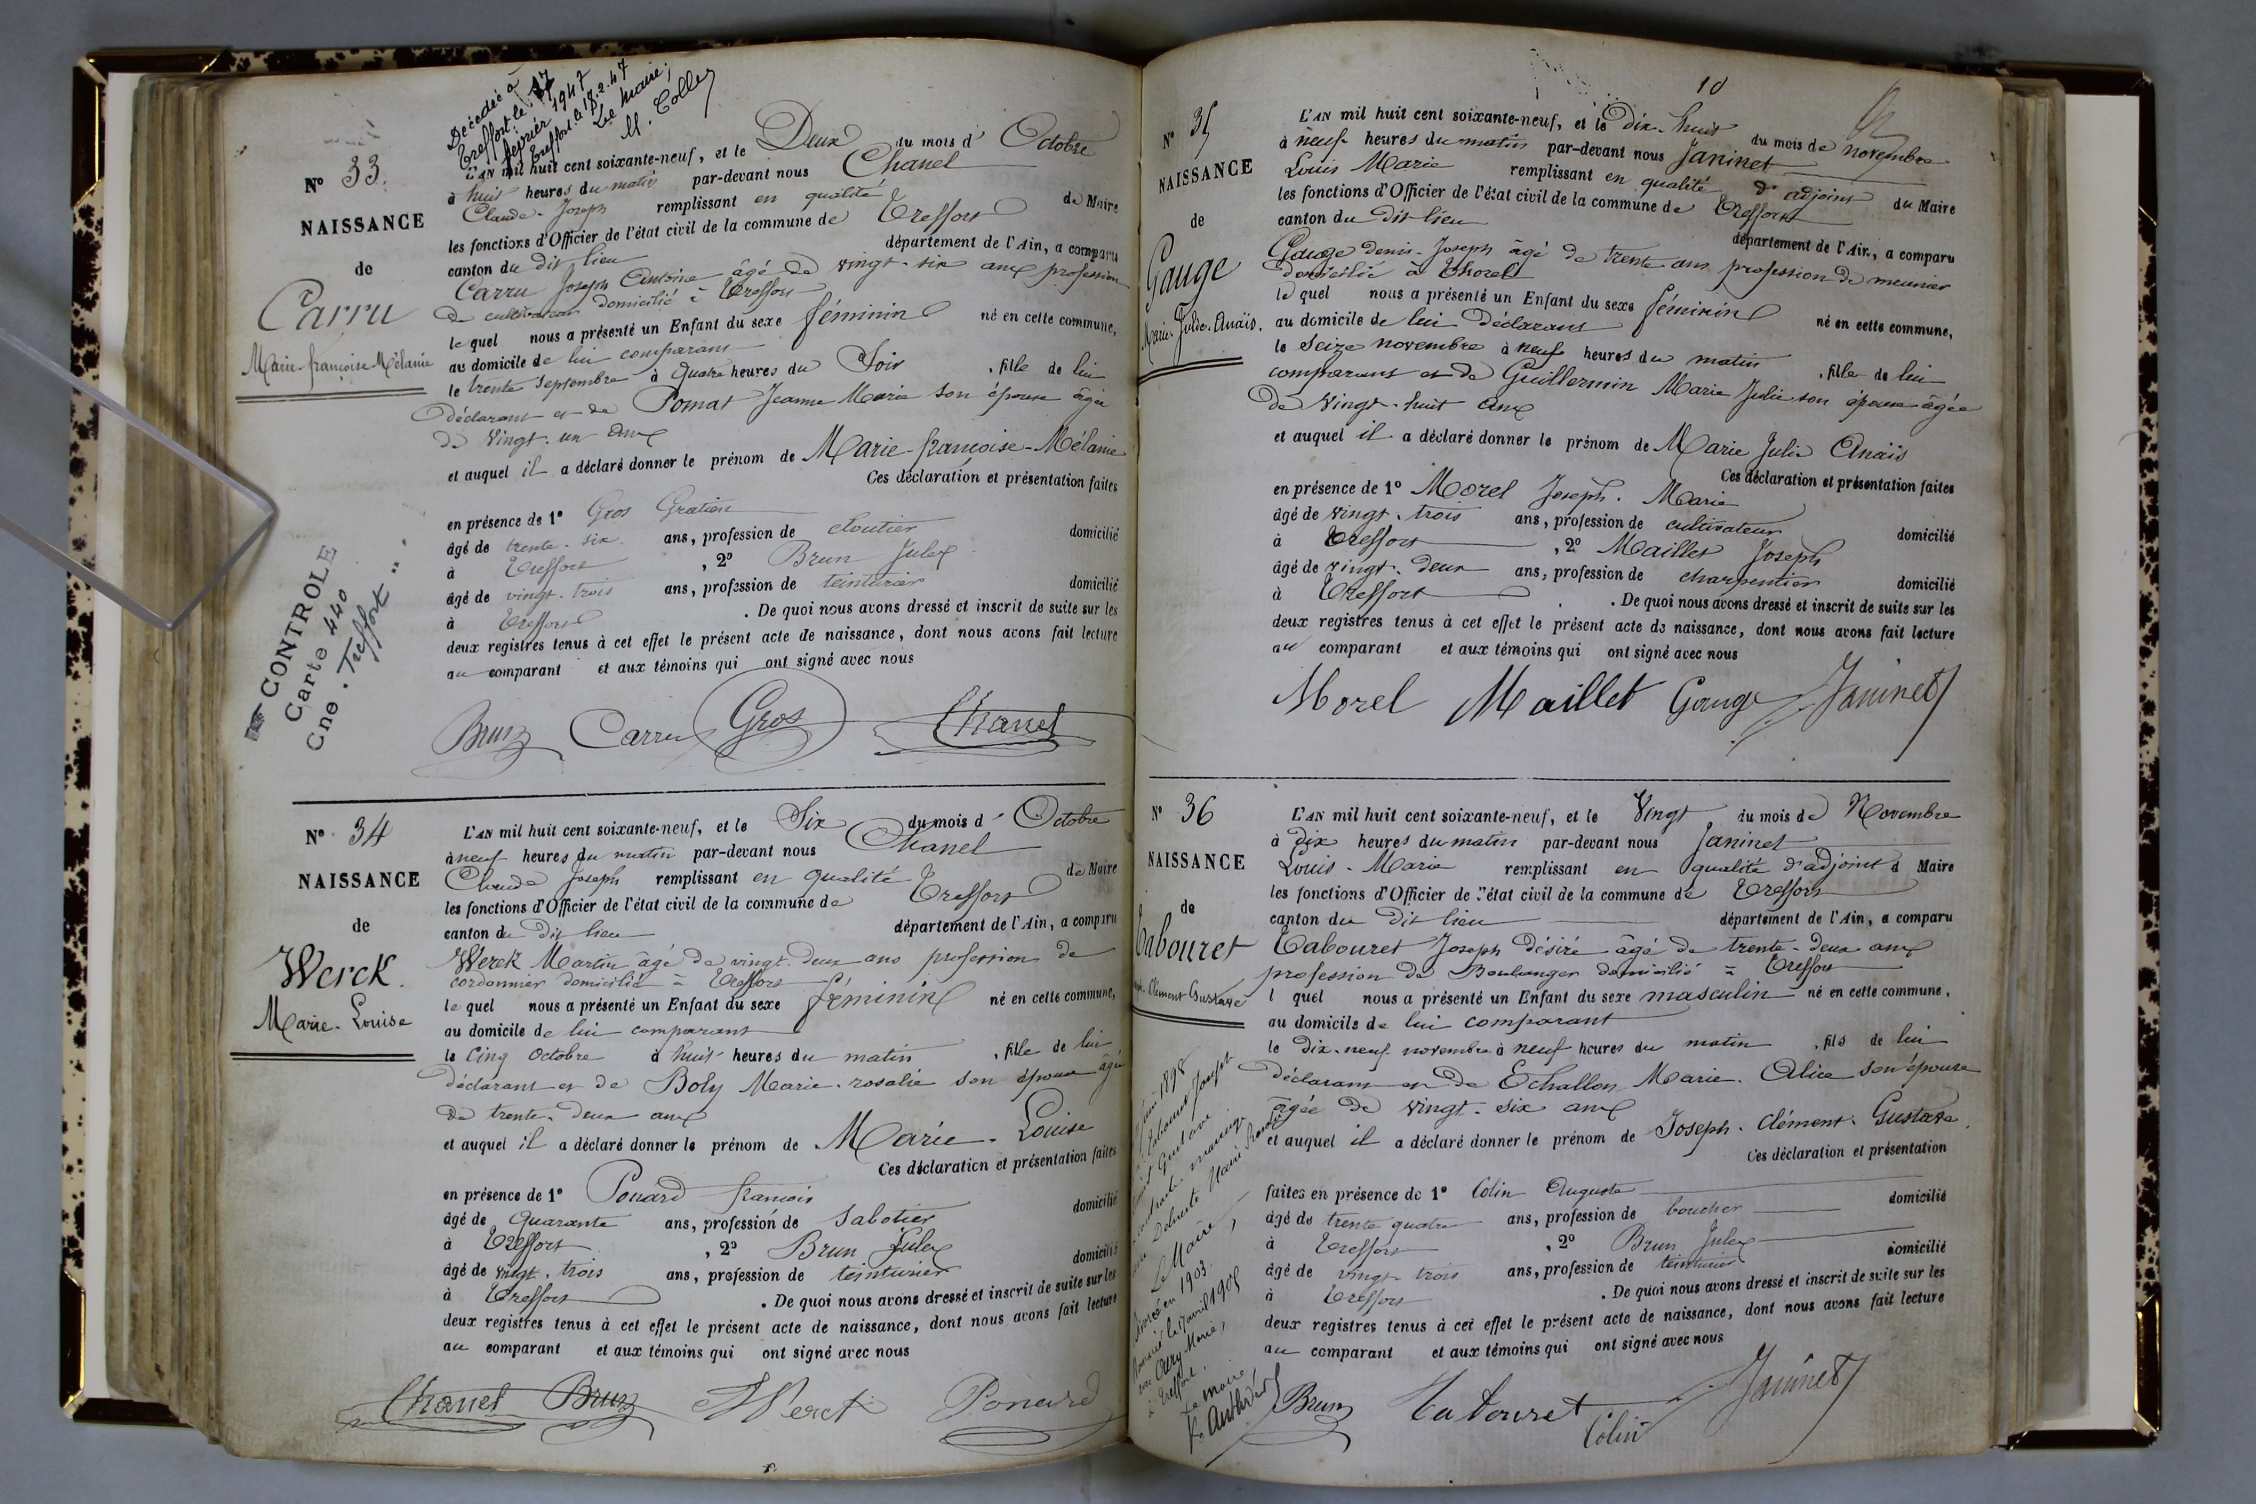 Décédée à
Treffort le 17
février 1947
Treffort le 18.2.47
Le Maire,
N° 33.
NAISSANCE
de
Carru
Marie-françoise Mélanie
CONTROLE
Carte 440
Cne. Treffort
L'AN mil huit cent soixante-neuf, et le Deux du mois d' Octobre
à huit heures du matin par-devant nous Chanel
Claude-Joseph remplissant en qualité de Maire
les fonctions d'Officier de l'état civil de la commune de Treffort
canton du dit lieu département de l'Ain, a comparu
Carru Joseph Antoine âgé de vingt-six ans profession
de cultivateur domicilié à Treffort
le quel nous a présenté un Enfant du sexe féminin né en cette commune,
au domicile de lui comparant
le trente septembre à quatre heures du Soir, fille de lui
déclarant et de Pomat Jeanne Marie son épouse âgée
de vingt-un ans
et auquel il a déclaré donner le prénom de Marie-françoise-Mélanie
Ces déclaration et présentation faites
en présence de 1° Gros Gratien
âgé de trente-six ans, profession de cloutier domicilié
à Treffort, 2° Brun Jules
âgé de vingt-trois ans, profession de teinturier domicilié
à Treffort. De quoi nous avons dressé et inscrit de suite sur les
deux registres tenus à cet effet le présent acte de naissance, dont nous avons fait lecture
au comparant et aux témoins qui ont signé avec nous
Brun Carru Gros Chanel
N° 34
NAISSANCE
de
Werck.
Marie-Louise
L'AN mil huit cent soixante-neuf, et le Six du mois d' Octobre
à neuf heures du matin par-devant nous Chanel
Claude Joseph remplissant en qualité de Maire
les fonctions d'Officier de l'état civil de la commune de Treffort
canton du dit lieu département de l'Ain, a comparu
Werck Martin âgé de vingt-deux ans profession de
cordonnier domicilié à Treffort
le quel nous a présenté un Enfant du sexe féminin né en cette commune,
au domicile de lui comparant
le Cinq octobre à huit heures du matin, fille de lui
déclarant et de Boly Marie-rosalie son épouse âgée
de trente-deux ans
et auquel il a déclaré donner le prénom de Marie-Louise
Ces déclaration et présentation faites
en présence de 1° Ponard françois
âgé de quarante ans, profession de sabotier domicilié
à Treffort, 2° Brun Jules
âgé de vingt-trois ans, profession de teinturier domicilié
à Treffort. De quoi nous avons dressé et inscrit de suite sur les
deux registres tenus à cet effet le présent acte de naissance, dont nous avons fait lecture
au comparant et aux témoins qui ont signé avec nous
Chanel Brun Werck Ponard
10
N° 35
NAISSANCE
de
Gauge
Marie-Julie-Anaïs.
L'AN mil huit cent soixante-neuf, et le dix-huit du mois de novembre
à neuf heures du matin par-devant nous Janinet
Louis Marie remplissant en qualité d'adjoint du Maire
les fonctions d'Officier de l'état civil de la commune de Treffort
canton du dit lieu département de l'Ain, a comparu
Gauge denis-Joseph âgé de trente ans profession de meunier
domicilié à
le quel nous a présenté un Enfant du sexe féminin né en cette commune,
au domicile de lui déclarant
le Seize novembre à neuf heures du matin, fille de lui
comparant et de Guillermin Marie Julie son épouse âgée
de vingt-huit ans
et auquel il a déclaré donner le prénom de Marie Julie Anaïs
Ces déclaration et présentation faites
en présence de 1° Morel Joseph-Marie
âgé de vingt-trois ans, profession de cultivateur domicilié
à Treffort, 2° Maillet Joseph
âgé de vingt-deux ans, profession de charpentier domicilié
à Treffort. De quoi nous avons dressé et inscrit de suite sur les
deux registres tenus à cet effet le présent acte de naissance, dont nous avons fait lecture
au comparant et aux témoins qui ont signé avec nous
Morel Maillet Gauge Janinet
N° 36
NAISSANCE
de
Tabouret
Clément Gustave
L'AN mil huit cent soixante-neuf, et le Vingt du mois de Novembre
à dix heures du matin par-devant nous Janinet
Louis-Marie remplissant en qualité d'adjoint Maire
les fonctions d'Officier de l'état civil de la commune de Treffort
canton du dit lieu département de l'Ain, a comparu
Tabouret Joseph désiré âgé de trente-deux ans
profession de Boulanger domicilié à Treffort
l quel nous a présenté un Enfant du sexe masculin né en cette commune,
au domicile de lui comparant
le dix-neuf novembre à neuf heures du matin, fils de lui
déclarant et de Echallon Marie-Alice son épouse
âgée de vingt-six ans
et auquel il a déclaré donner le prénom de Joseph-Clément-Gustave.
Ces déclaration et présentation
faites en présence de 1° Colin Auguste
âgé de trente quatre ans, profession de boucher domicilié
à Treffort, 2° Brun Jules
âgé de vingt-trois ans, profession de teinturier domicilié
à Treffort. De quoi nous avons dressé et inscrit de suite sur les
deux registres tenus à cet effet le présent acte de naissance, dont nous avons fait lecture
au comparant et aux témoins qui ont signé avec nous
1898
Joseph
Gustave
mariage
Le Maire,
Divorcé en 1903.
avril 1905
Marie,
à Treffort.
Le Maire,
Brun Tabouret Colin Janinet